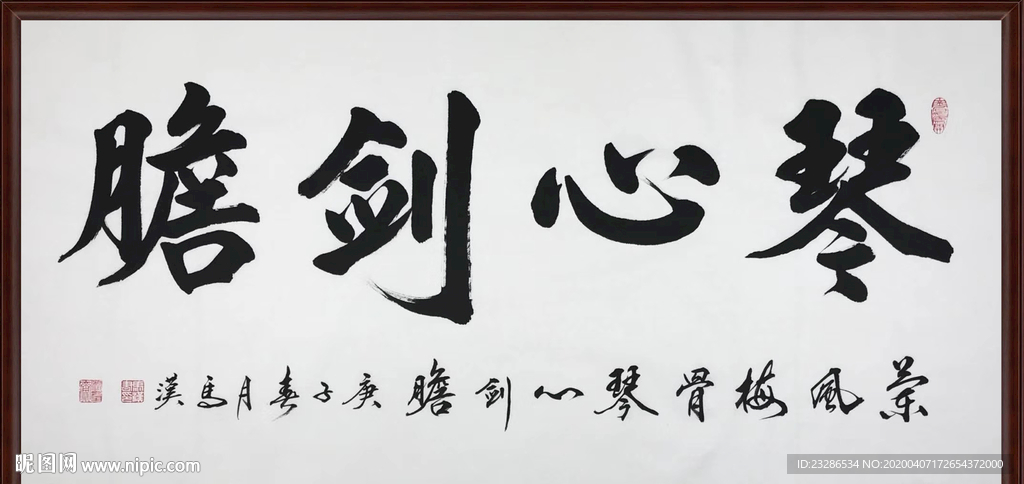 琴心剑膽
蘭風梅骨琴心剑膽庚子春月馬漢
昵图网 www.nipic.com
ID:23286534 NO:20200407172654372000